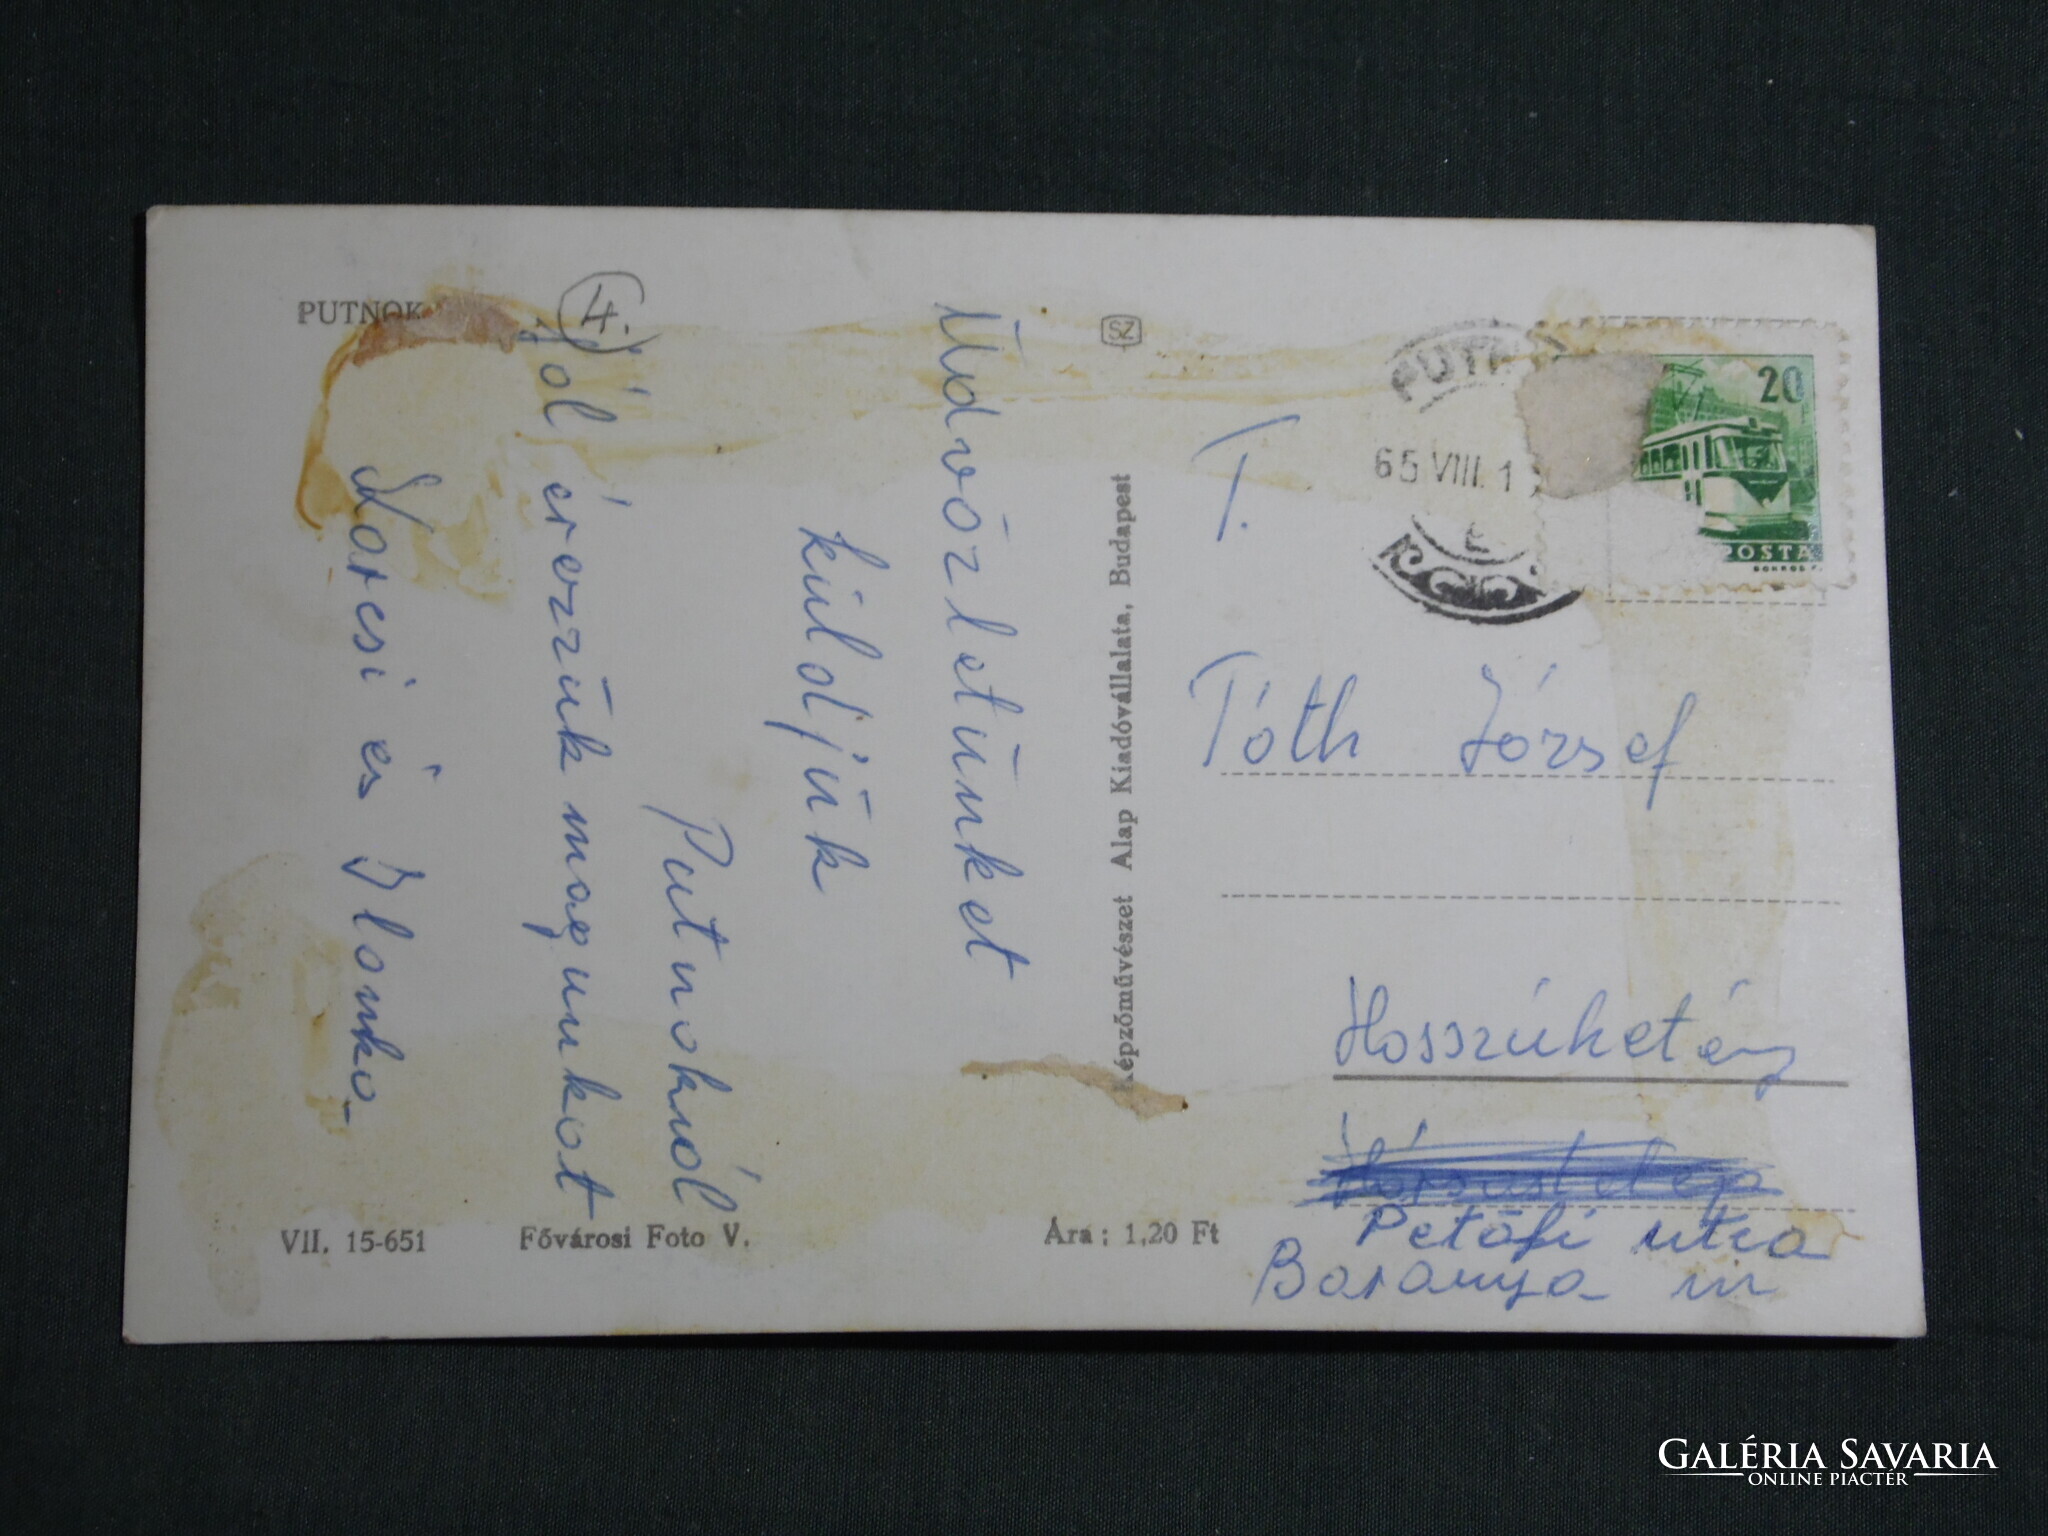 PUTNOK
4.
Üdvözletünket
küldjük
Putnokról
Jól érezzük magunkat
Karcsi és Ilonka
SZ
Képzőművészet Alap Kiadóvállalata, Budapest
PUTN
65 VIII. 1
20
POSTA
T.
Tóth József
Hosszúhetény
Petőfi utca
Baranya m
VII. 15-651
Fővárosi Foto V.
Ára: 1,20 Ft
GALÉRIA SAVARIA
ONLINE PIACTÉR